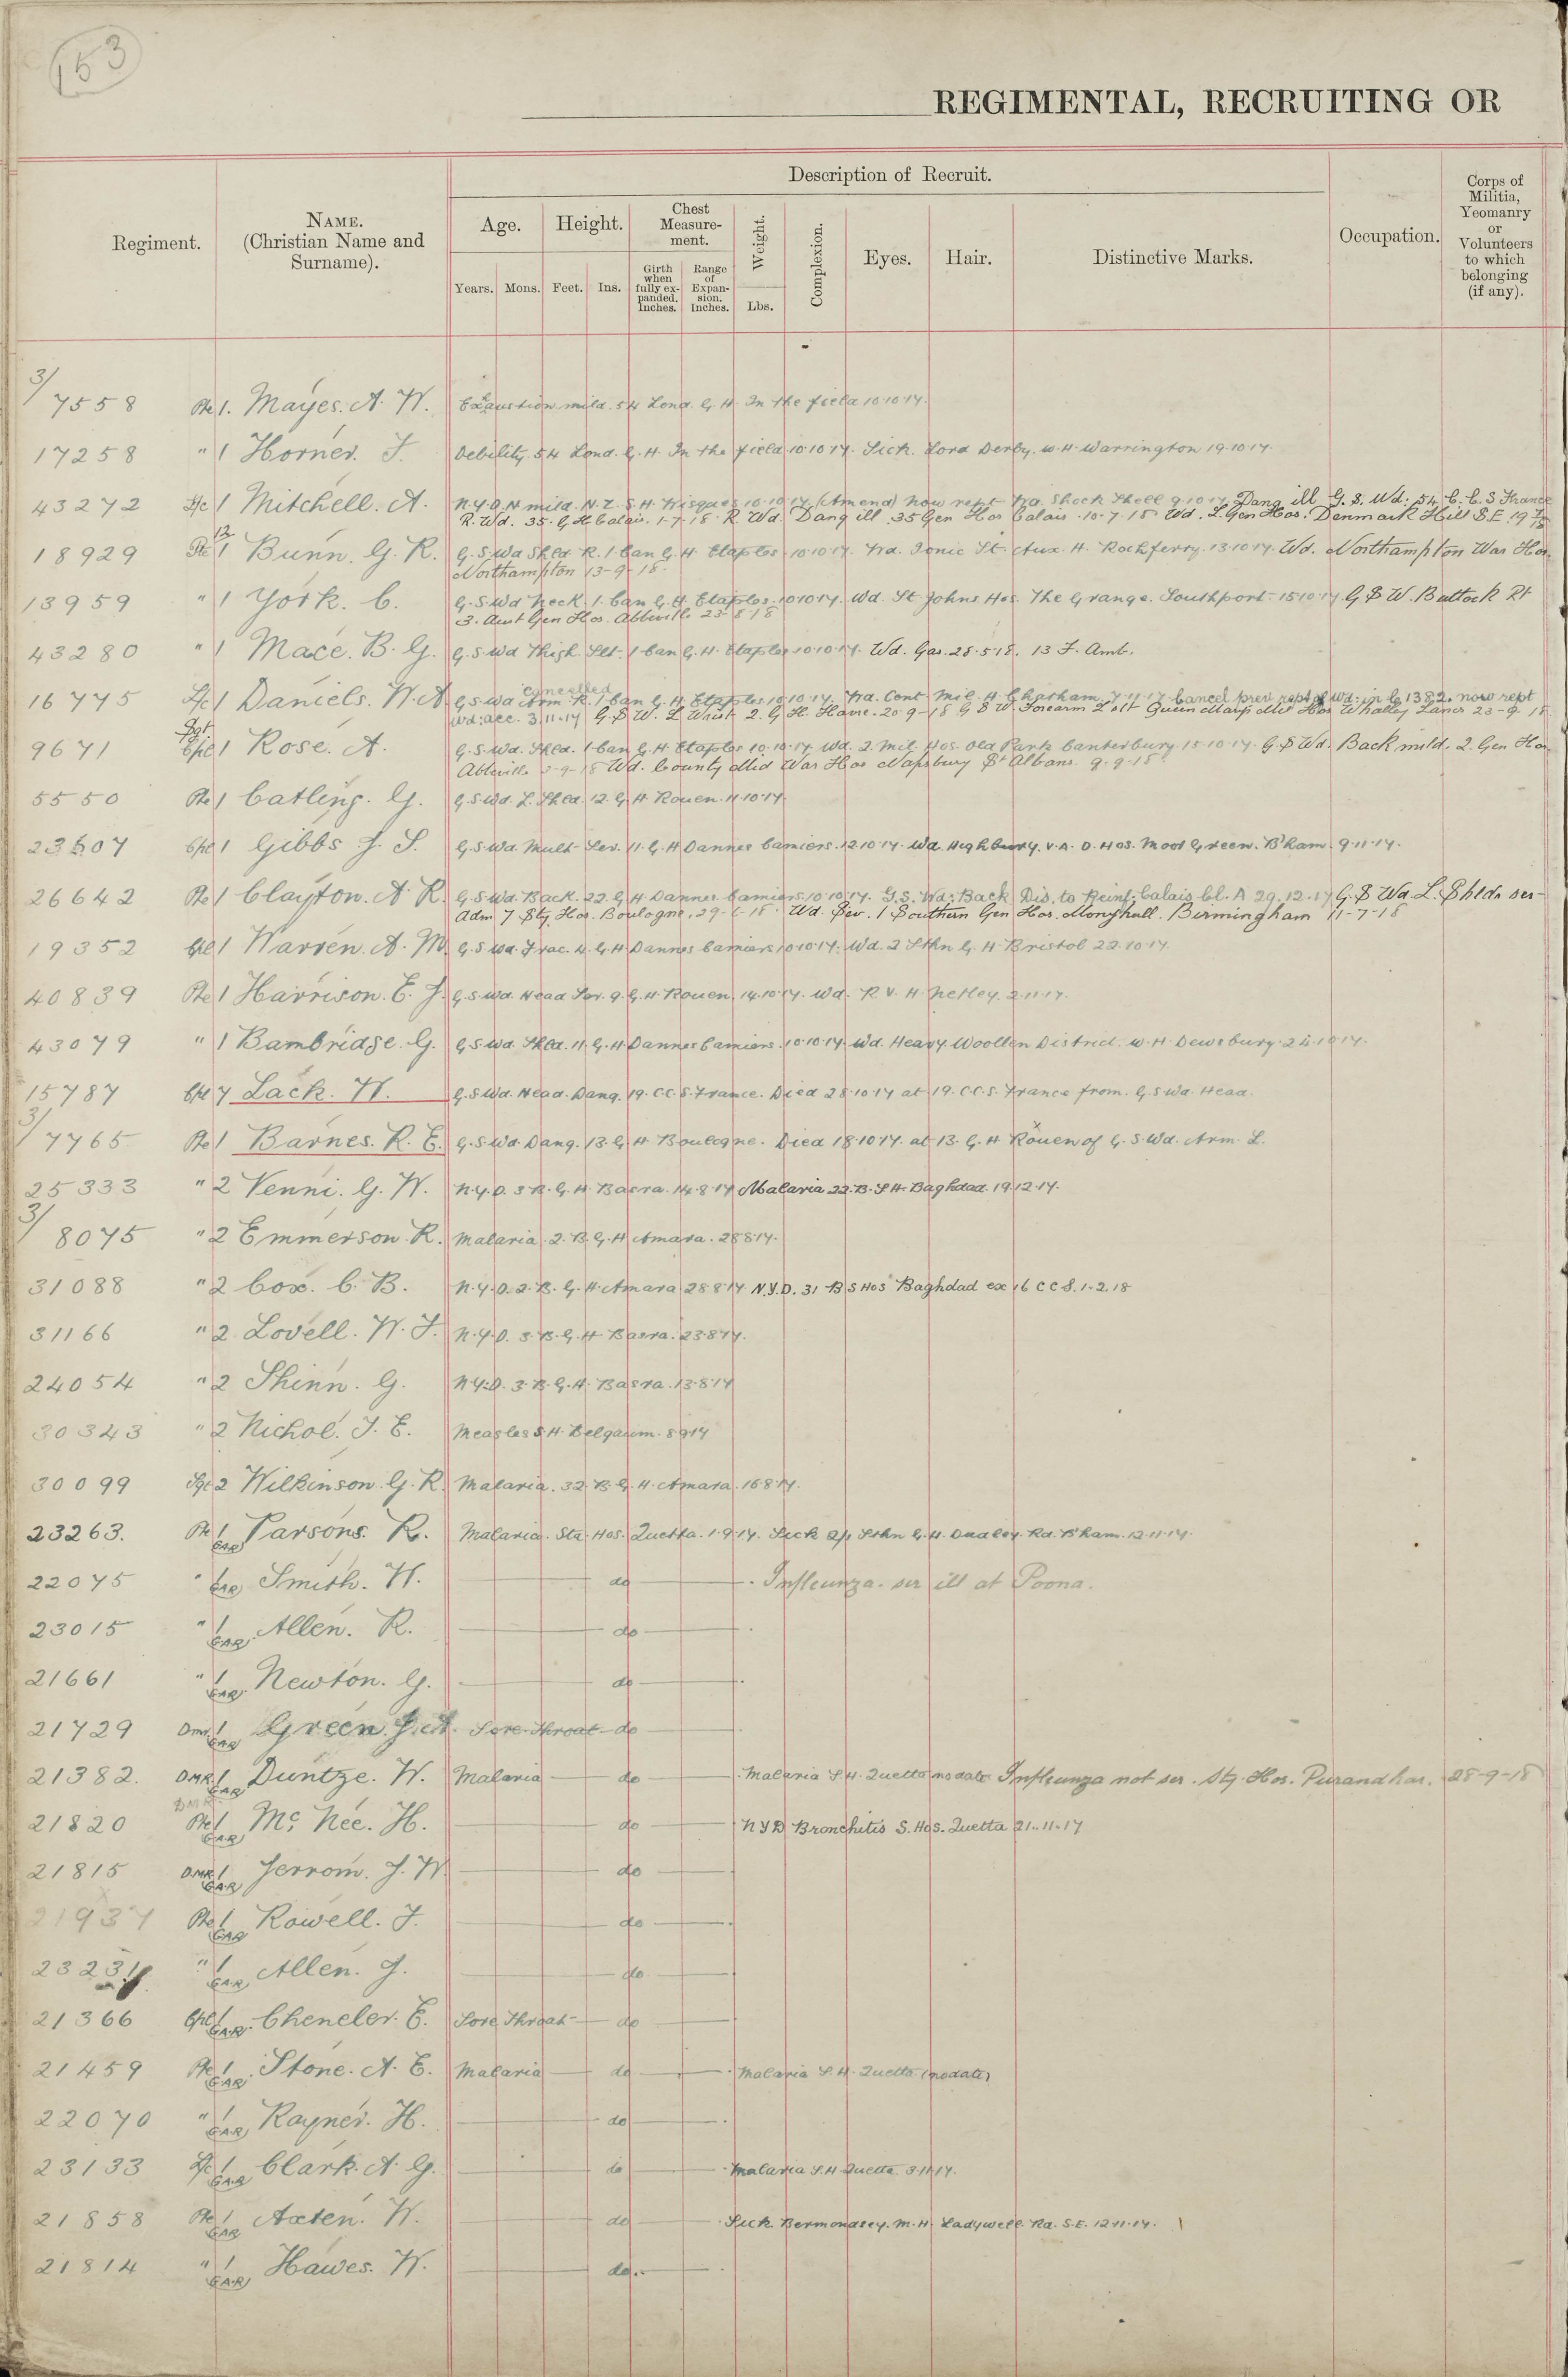 153
REGIMENTAL, RECRUITING OR
Description of Recruit.
Regiment.
NAME.
(Christian Name and
Surname).
Age.
Height.
Chest
Measure-
ment.
Weight.
Complexion.
Eyes.
Hair.
Distinctive Marks.
Occupation.
Corps of
Militia,
Yeomanry
or
Volunteers
to which
belonging
(if any).
Years.
Mons.
Feet.
Ins.
Girth
when
fully ex-
panded.
Inches.
Range
of
Expan-
sion.
Inches.
Lbs.
3/
7558 Pte 1. Mayes. A. W. Exaustion mild. 54 Lond. G. H. In the field 10.10.17.
17258 " 1 Horner. J. Debility. 54 Lond. G. H. In the field 10.10.17. Sick. Lord Derby. W. H. Warrington 19.10.17.
43272 L/c 1 Mitchell. A. N.Y.D.N mild. N.Z. S.H. Wisques 10.10.17. (Amend) Now rept Wd. Shock Shell 9.10.17. Dang ill G. S. Wd. 54. C. C. S France
R. Wd. 35. G. H Calais. 1-7-18 R. Wd. Dang ill. 35 Gen Hos Calais. 10-7-18 Wd. L. Gen Hos. Denmark Hill S.E. 19 7/18
18929 Pte 1 12 Bunn. G. R. G. S. Wd Shld R. 1 Can G. H. Etaples. 10.10.17. Wd. Ionic St. Aux. H. Rockferry. 13.10.17. Wd. Northampton War Hos.
Northampton 13-9-18.
13959 " 1 York. C. G. S. Wd Neck. 1. Can G. H. Etaples. 10.10.17. Wd. St Johns Hos. The Grange. Southport. 15.10.17 G. S W. Buttock Rt
3. Aust Gen Hos. Abbeville 23-8-18
43280 " 1 Mace. B. G. G. S. Wd Thigh. Slt. 1 Can G. H. Etaples 10.10.17. Wd. Gas. 28.5.18. 13 F. Amb.
16775 L/c 1 Daniels. W. A. G. S. Wd Arm R. 1 Can G. H. Etaples 10.10.17. Wd. Cont. Mil. H. Chatham. 7.11.17 Cancel prev rept of Wd. in Co 1382. now rept
cancelled
Wd. acc. 3.11.17. G. S W. L Wrist 2. G H. Havre. 20-9-18 G S W. Forearm L slt Queen Marys Mil Hos Whalley Lancs 23-9-18
Sgt
9671 Cpl 1 Rose. A. G. S. Wd. Shld. 1 Can G. H. Etaples 10.10.17. Wd. 2. Mil. Hos. Old Park Canterbury 15.10.17. G. S Wd. Back mild. 2. Gen Hos
Abbeville 3-9-18 Wd. County Mid War Hos Napsbury St Albans. 9-9-18
5550 Pte 1 Catling. G. G. S. Wd. L. Shld. 12. G. H Rouen. 11.10.17.
23607 Cpl 1 Gibbs J. S. G. S. Wd. Mult. Sev. 11. G. H Dannes Camiers. 12.10.17. Wd. Highbury. V. A. D. Hos. Moor Green. B'ham. 9.11.17.
26642 Pte 1 Clayton. A R. G. S. Wd. Back. 22. G. H Dannes Camiers 10.10.17. G.S. Wd. Back Dis. to Reinf. Calais cl. A 29.12.17 G. S Wd L. Shldr ser-
adm 7 Sty Hos. Boulogne. 29-6-18. Wd. Sev. 1 Southern Gen Hos. Monyhull. Birmingham 11-7-18
19352 Cpl 1 Warren. A. M. G. S Wd. Frac. 4. G. H Dannes Camiers 10.10.17. Wd. 2 Sthn G. H Bristol 22.10.17.
40839 Pte 1 Harrison. E. J. G. S. Wd. Head Sev. 9. G. H. Rouen. 14.10.17. Wd. R. V. H. Netley. 2.11.17.
43079 " 1 Bambridge. G. G. S. Wd. Shld. 11. G. H Dannes Camiers. 10.10.17. Wd. Heavy Woollen District. W. H. Dewsbury. 24.10.17.
15787 Cpl 7 Lack. W. G. S. Wd. Head. Dang. 19. C.C. S. France. Died 28.10.17 at 19. C.C.S. France from. G. S Wd. Head.
3/
7765 Pte 1 Barnes. R. E. G. S. Wd. Dang. 13. G. H Boulogne. Died 18.10.17. at 13. G. H Rouen of G. S. Wd. Arm. L.
25333 " 2 Venni. G. W. N. Y. D. 3 B. G. H Basra. 14.8.17 Malaria 22. B. S H. Baghdad. 19.12.17.
3/
8075 " 2 Emmerson. R. Malaria. 2. B. G. H Amara. 28.8.17.
31088 " 2 Cox. C. B. N. Y. D. 2. B. G. H. Amara 28.8.17 N.Y.D. 31 B S Hos Baghdad ex 16 C C S. 1.2.18
31166 " 2 Lovell. W. J. N. Y. D. 3. B. G. H Basra. 23.8.17.
24054 " 2 Shinn. G. N. Y. D. 3. B. G. H. Basra. 13.8.17
30343 " 2 Nichol. J. E. Measles S. H. Belgaum. 8.9.17
30099 Sgt 2 Wilkinson. G. R. Malaria. 32. B. G. H. Amara. 16.8.17.
23263. Pte 1 GAR Parsons. R. Malaria. Sta. Hos. Quetta. 1.9.17. Sick 2/1 Sthn G. H. Dudley. Rd. B'ham. 12.11.17.
22075 " 1 GAR Smith. W. do Influenza. ser ill at Poona.
23015 " 1 GAR Allen. R. do
21661 " 1 GAR Newton. G. do
21729 Dmr. 1 GAR Green. J. A. Sore Throat do
21382. DMR. 1 GAR Duntze. W. Malaria do Malaria S. H. Quetta no date Influenza not ser. Sty. Hos. Purandhar. 28-9-18
DMR
21820 Pte 1 GAR Mc. Nee. H. do NYD Bronchitis S. Hos. Quetta 21.11.17
21815 DMR 1 GAR Jerrom. J. W. do
21937 Pte 1 GAR Rowell. J. do
23231 " 1 GAR Allen. J. do
21366 Cpl 1 GAR Cheneler. E. Sore Throat do
21459 Pte 1 GAR Stone. A. E. Malaria do Malaria S. H. Quetta (no date)
22070 " 1 GAR Rayner. H. do
23133 L/c 1 GAR Clark. A. G. do Malaria S. H Quetta. 3.11.17.
21858 Pte 1 GAR Axten. W. do Sick Bermondsey. M. H. Ladywell Rd. S.E. 12.11.17.
21814 " 1 GAR Hawes. W. do